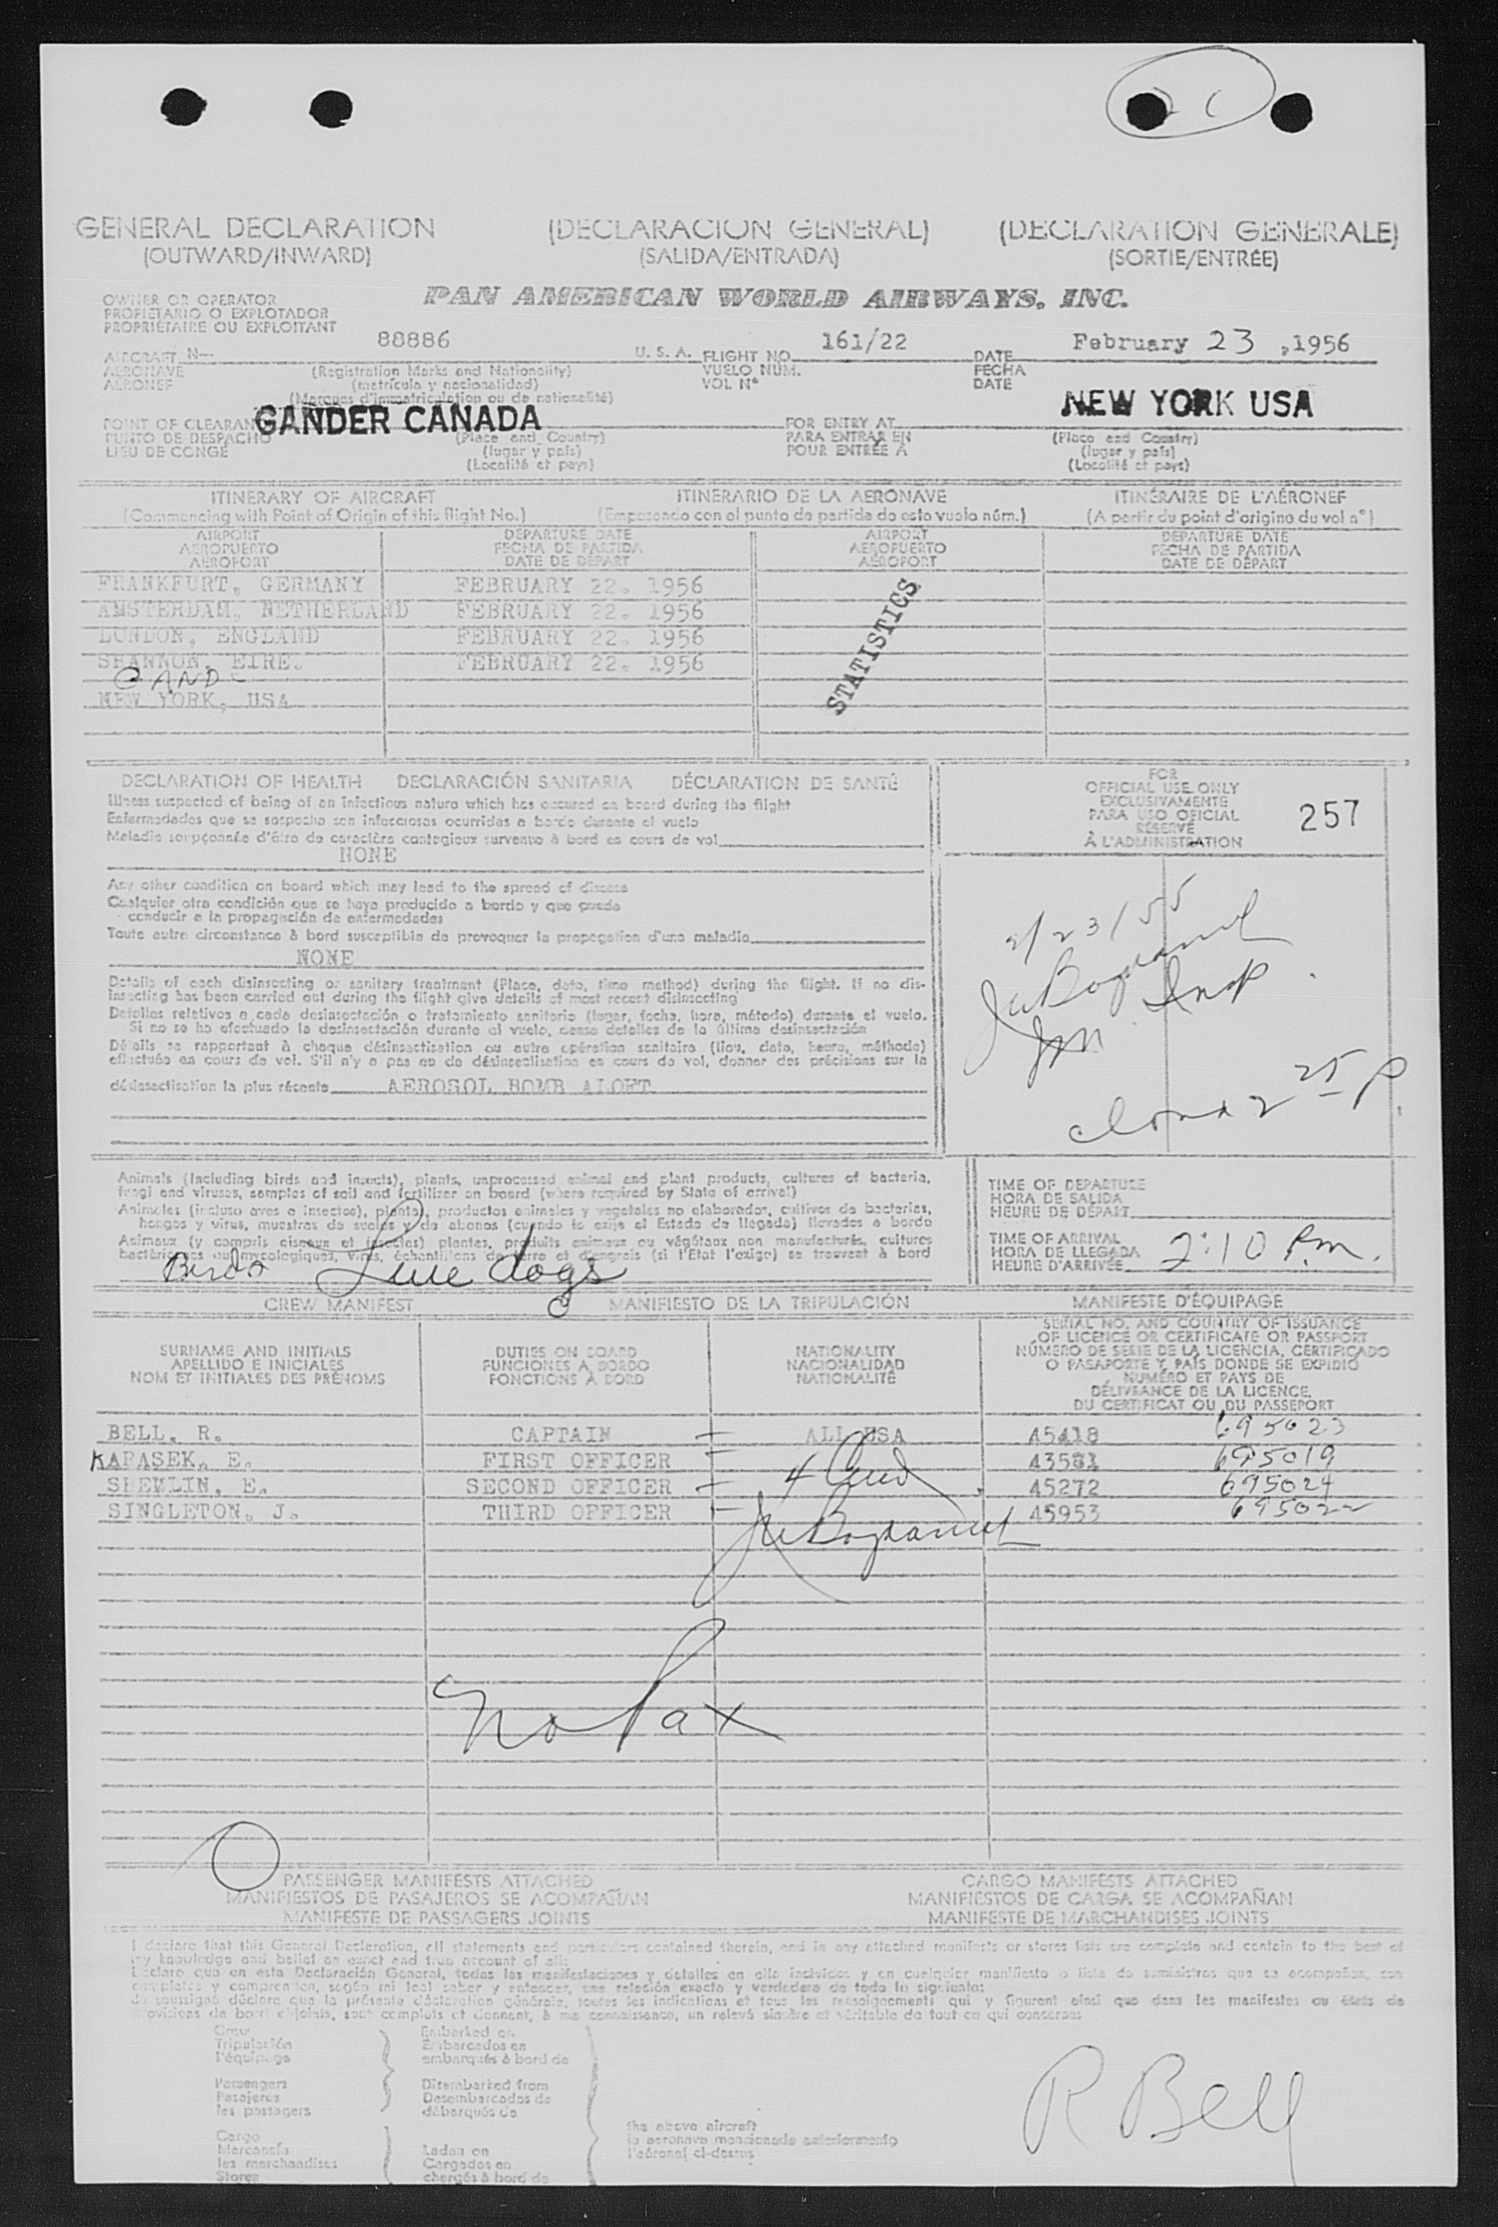 GENERAL DECLARATION (DECLARACION GENERAL) (DECLARATION GENERALE)
(OUTWARD/INWARD) (SALIDA/ENTRADA) (SORTIE/ENTRÉE)
OWNER OR OPERATOR
PROPIETARIO O EXPLOTADOR
PROPRIÉTAIRE OU EXPLOITANT
PAN AMERICAN WORLD AIRWAYS, INC.
AIRCRAFT N— 88886 U. S. A. FLIGHT NO. 161/22 DATE February 23, 1956
AERONAVE (Registration Marks and Nationality) VUELO NÚM. FECHA
AERONEF (matrícula y nacionalidad) VOL Nº DATE
(Marques d'immatriculation ou de nationalité)
POINT OF CLEARAN GANDER CANADA FOR ENTRY AT NEW YORK USA
PUNTO DE DESPACHO (Place and Country) PARA ENTRAR EN (Place and Country)
LIEU DE CONGÉ (lugar y país) POUR ENTRÉE A (lugar y país)
(Localité et pays) (Localité et pays)
ITINERARY OF AIRCRAFT ITINERARIO DE LA AERONAVE ITINÉRAIRE DE L'AÉRONEF
(Commencing with Point of Origin of this flight No.) (Empezando con el punto de partida de este vuelo núm.) (A partir du point d'origine du vol nº)
AIRPORT DEPARTURE DATE AIRPORT DEPARTURE DATE
AEROPUERTO FECHA DE PARTIDA AEROPUERTO FECHA DE PARTIDA
AÉROPORT DATE DE DÉPART AÉROPORT DATE DE DÉPART
FRANKFURT, GERMANY FEBRUARY 22. 1956
AMSTERDAM, NETHERLAND FEBRUARY 22. 1956
LONDON, ENGLAND FEBRUARY 22. 1956
SHANNON, EIRE. FEBRUARY 22. 1956
NEW YORK, USA
STATISTICS
DECLARATION OF HEALTH DECLARACIÓN SANITARIA DÉCLARATION DE SANTÉ
Illness suspected of being of an infectious nature which has occured on board during the flight
Enfermedades que se sospecha son infecciosas ocurridas a bordo durante el vuelo
Maladie soupçonnée d'être de caractère contagieux survenue à bord en cours de vol
NONE
Any other condition on board which may lead to the spread of disease
Cualquier otra condición que se haya producido a bordo y que pueda
conducir a la propagación de enfermedades
Toute autre circonstance à bord susceptible de provoquer la propagation d'une maladie
NONE
Details of each disinsecting or sanitary treatment (Place, date, time method) during the flight. If no dis-
insecting has been carried out during the flight give details of most recent disinsecting
Detalles relativos a cada desinsectación o tratamiento sanitario (lugar, fecha, hora, método) durante el vuelo.
Si no se ha efectuado la desinsectación durante el vuelo, dense detalles de la última desinsectación
Détails se rapportant à chaque désinsectisation ou autre opération sanitaire (lieu, date, heure, méthode)
effectuée en cours de vol. S'il n'y a pas eu de désinsectisation en cours de vol, donner des précisions sur la
désinsectisation la plus récente AEROSOL BOMB ALOFT
FOR
OFFICIAL USE ONLY
EXCLUSIVAMENTE
PARA USO OFICIAL
RÉSERVÉ
À L'ADMINISTRATION
257
2/23/55
Insp
Imm
25 P.
Animals (including birds and insects), plants, unprocessed animal and plant products, cultures of bacteria,
fungi and viruses, samples of soil and fertilizer on board (where required by State of arrival)
Animales (incluso aves e insectos), plantas, productos animales y vegetales no elaborados, cultivos de bacterias,
hongos y virus, muestras de suelos y de abonos (cuando lo exija el Estado de llegada) llevados a bordo
Animaux (y compris oiseaux et insectes) plantes, produits animaux ou végétaux non manufacturés, cultures
bactériennes ou mycologiques, virus, échantillons de terre et d'engrais (si l'Etat l'exige) se trouvant à bord
Birds Live dogs
TIME OF DEPARTURE
HORA DE SALIDA
HEURE DE DÉPART
TIME OF ARRIVAL
HORA DE LLEGADA
HEURE D'ARRIVÉE 2:10 Pm.
CREW MANIFEST MANIFIESTO DE LA TRIPULACIÓN MANIFESTE D'ÉQUIPAGE
SURNAME AND INITIALS
APELLIDO E INICIALES
NOM ET INITIALES DES PRÉNOMS
DUTIES ON BOARD
FUNCIONES A BORDO
FONCTIONS À BORD
NATIONALITY
NACIONALIDAD
NATIONALITÉ
SERIAL NO. AND COUNTRY OF ISSUANCE
OF LICENCE OR CERTIFICATE OR PASSPORT
NÚMERO DE SERIE DE LA LICENCIA, CERTIFICADO
O PASAPORTE Y PAÍS DONDE SE EXPIDIÓ
NUMÉRO ET PAYS DE
DÉLIVRANCE DE LA LICENCE,
DU CERTIFICAT OU DU PASSEPORT
BELL, R. CAPTAIN ALL USA 45418 695023
KAPASEK, E. FIRST OFFICER 43581 695019
SHEMLIN, E. SECOND OFFICER 45272 695024
SINGLETON, J. THIRD OFFICER 45953 695022
4
No Pax
PASSENGER MANIFESTS ATTACHED CARGO MANIFESTS ATTACHED
MANIFIESTOS DE PASAJEROS SE ACOMPAÑAN MANIFIESTOS DE CARGA SE ACOMPAÑAN
MANIFESTE DE PASSAGERS JOINTS MANIFESTE DE MARCHANDISES JOINTS
I declare that this General Declaration, all statements and particulars contained therein, and in any attached manifests or stores lists are complete and contain to the best of
my knowledge and belief an exact and true account of all:
Declaro que en esta Declaración General, todas las manifestaciones y detalles en ella incluidos y en cualquier manifiesto o lista de suministros que se acompañan, son
completos y comprenden, según mi leal saber y entender, una relación exacta y verdadera de todo lo siguiente:
Je soussigné déclare que la présente déclaration générale, toutes les indications et tous les renseignements qui y figurent ainsi que dans les manifestes ou états de
provisions de bord ci-joints, sont complets et donnent, à ma connaissance, un relevé sincère et véritable de tout ce qui concerne
Crew Embarked on
Tripulación Embarcados en
l'équipage embarqués à bord de
Passengers Disembarked from
Pasajeros Desembarcados de
les passagers débarqués de
Cargo
Mercancía Laden on
les marchandises Cargados en
Stores chargés à bord de
the above aircraft
la aeronave mencionada anteriormente
l'aéronef ci-dessus
R Bell